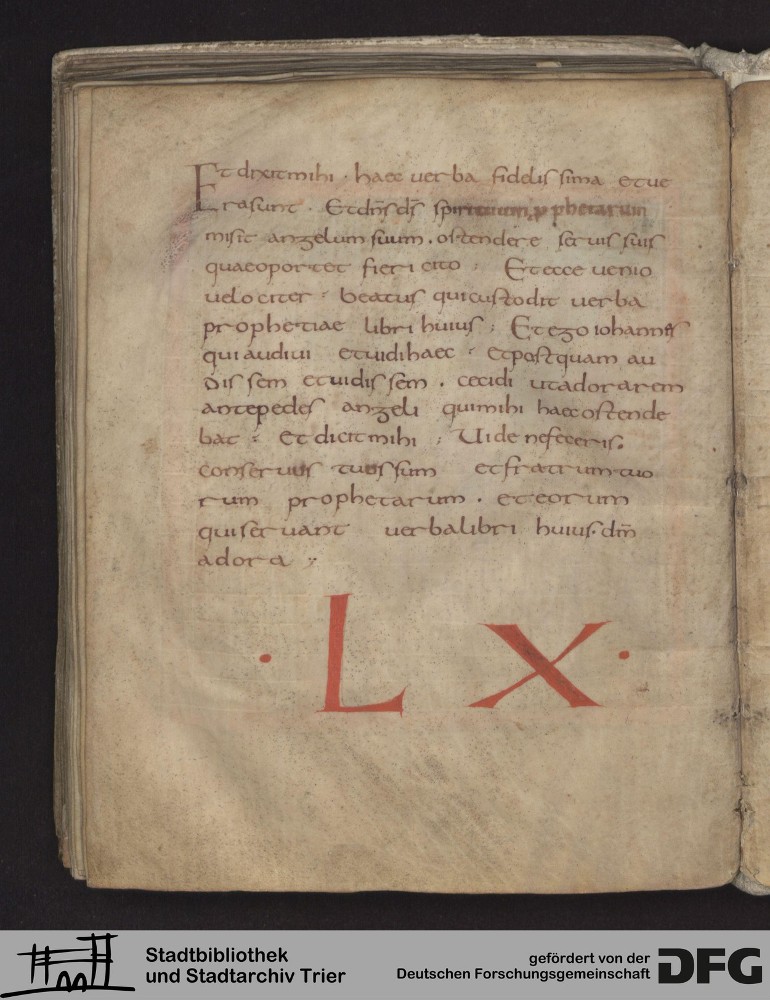 Et dixit mihi · haec uerba fidelissima et ue
rasunt · Et dn̄s ds̄ spirituum p̱phetarum
misit angelum suum . ostendere seruis suis
quae oportet fieri cito : Et ecce uenio
uelociter : beatus qui custodit uerba
prophetiae libri huius ; Et ego iohannes
qui audiui et uidi haec : et postquam au
dissem et uidissem . cecidi ut adorarem
ante pedes angeli qui mihi haec ostende
bat : et dicit mihi ; Uide ne feceris.
conseruus tuus sum et fratrum tuo
rum prophetarum . et eorum
qui seruant uerba libri huius. dm̄
adora ;
· L X ·
Stadtbibliothek
und Stadtarchiv Trier
gefördert von der
Deutschen Forschungsgemeinschaft
DFG